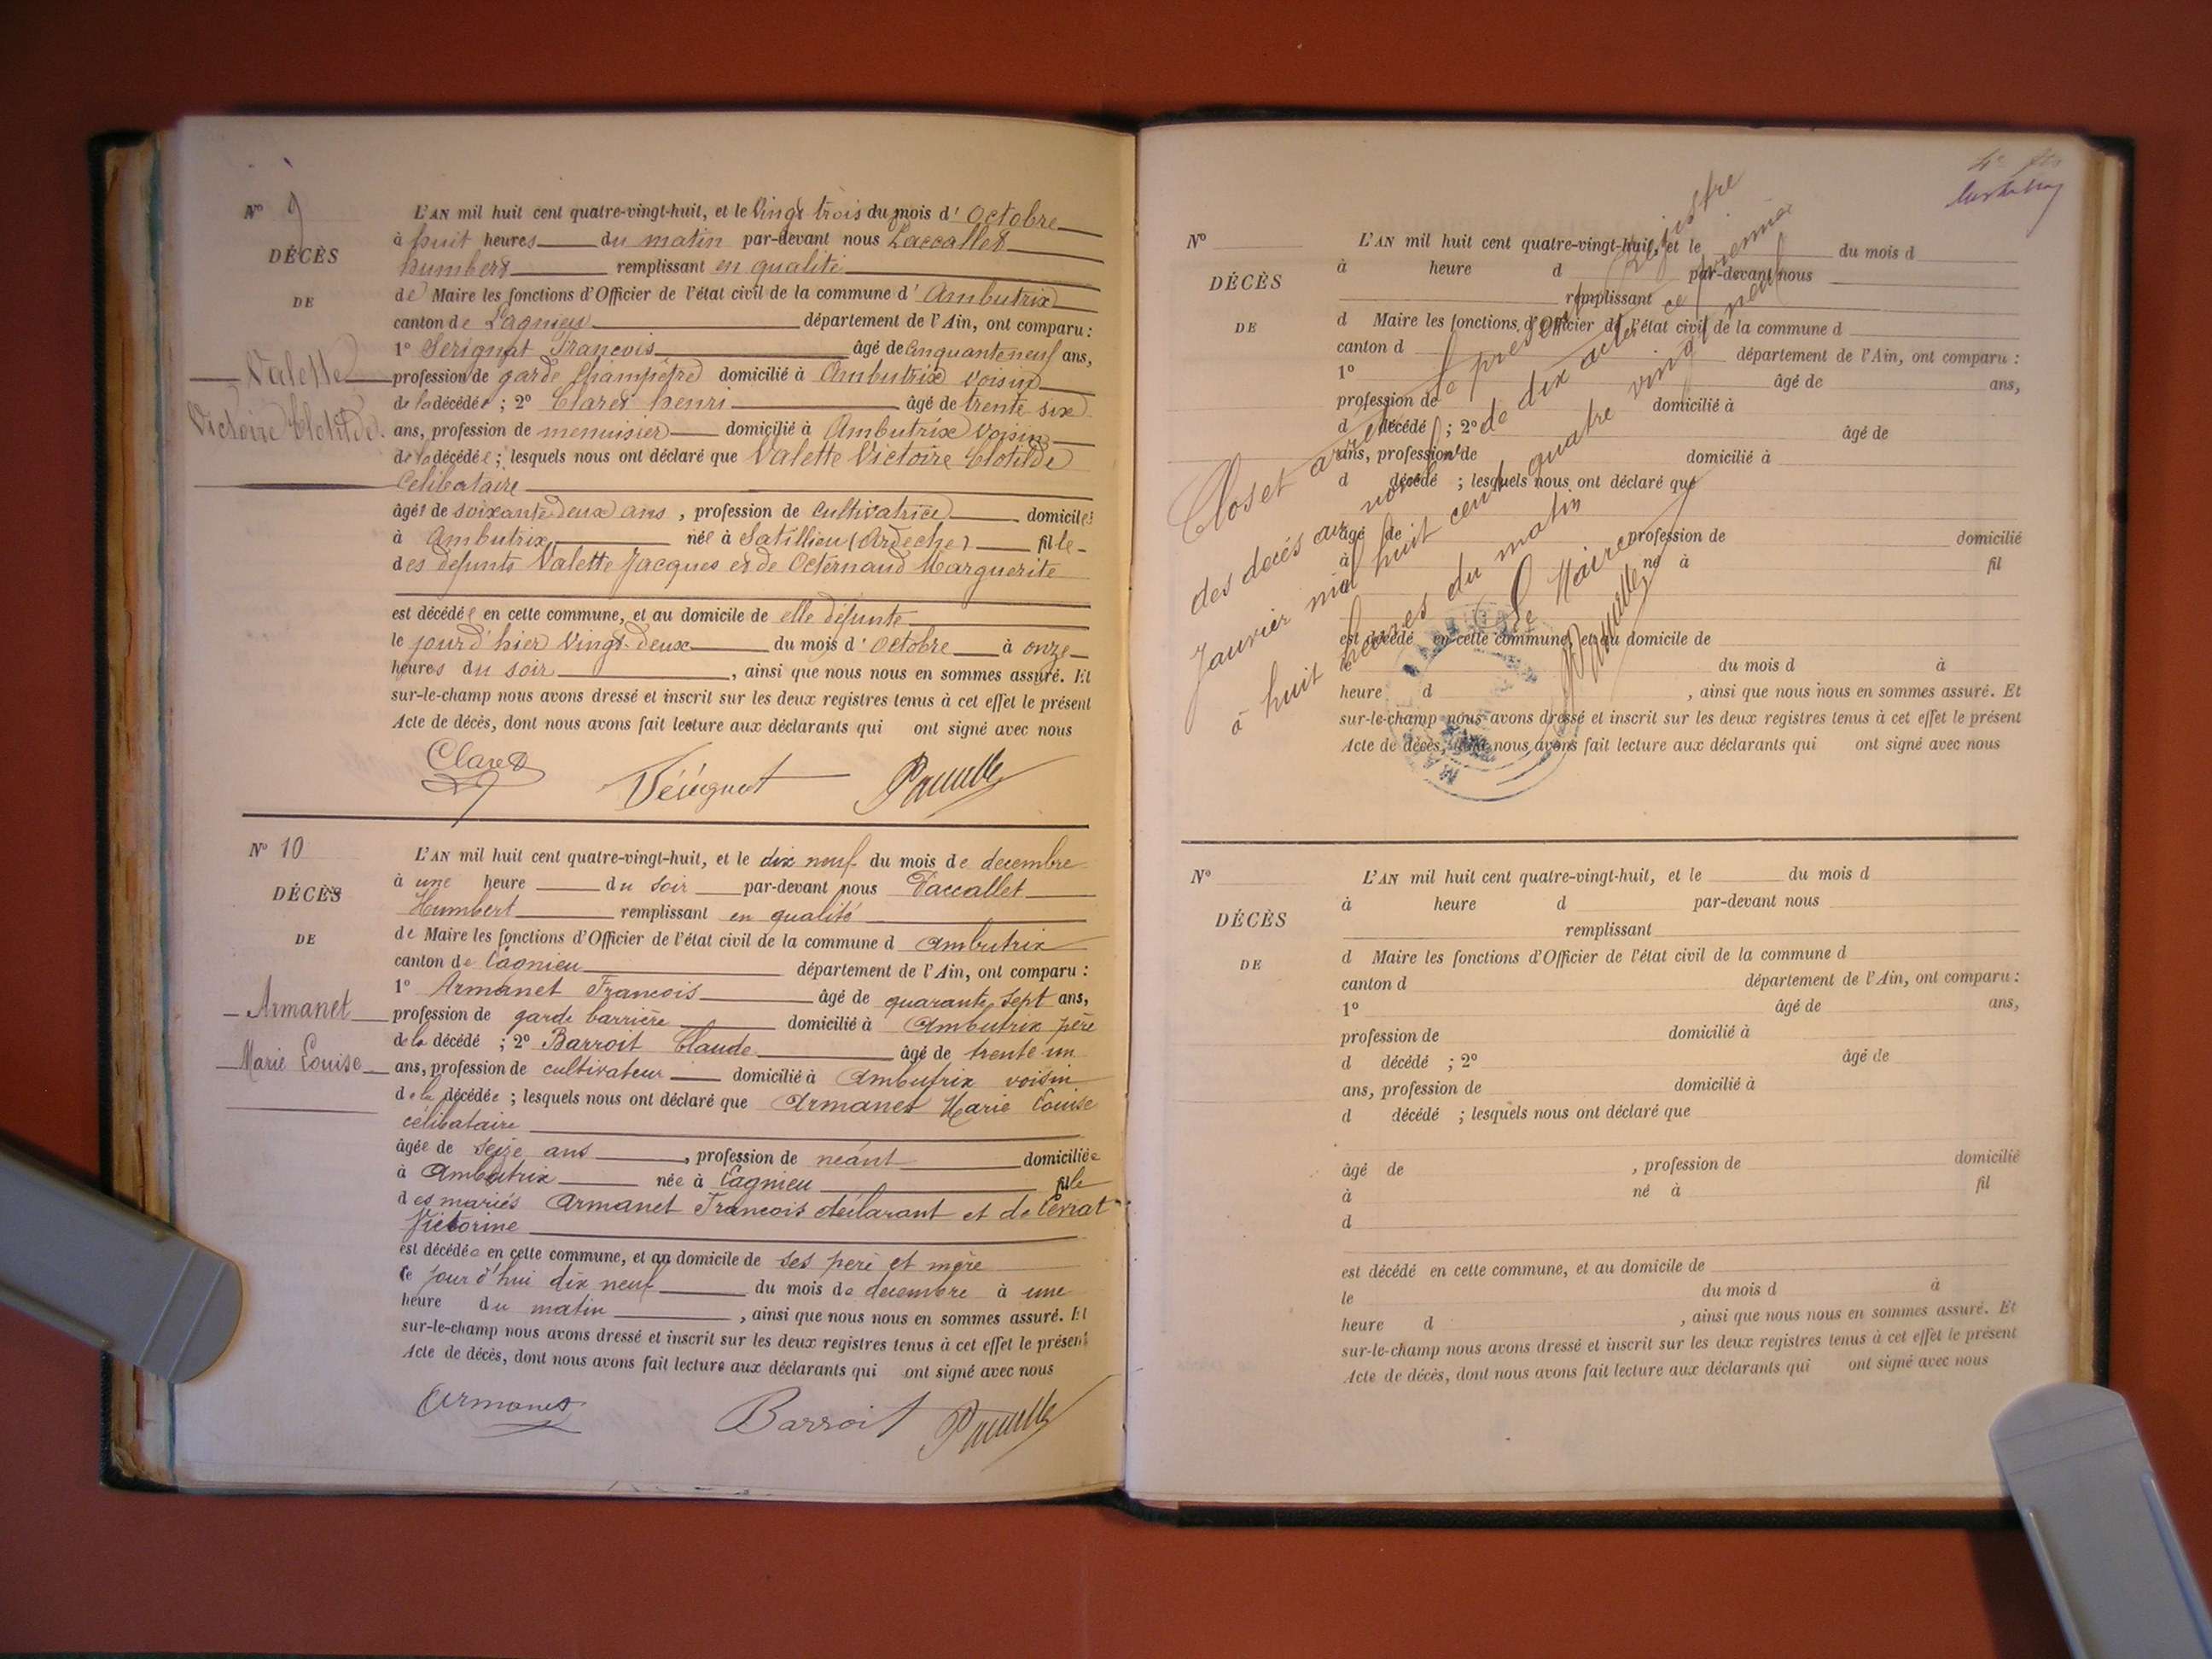 N° 9
DÉCÈS
DE
Valette
Victoire Clotilde.
L'AN mil huit cent quatre-vingt-huit, et le Vingt trois du mois d' Octobre
à huit heures du matin par-devant nous Paccallet
humbert remplissant en qualité
de Maire les fonctions d'Officier de l'état civil de la commune d' Ambutrix
canton de Lagnieu département de l'Ain, ont comparu :
1° François âgé de Cinquante neuf ans,
profession de garde Champêtre domicilié à Ambutrix voisin
de la décédée ; 2° Claret henri âgé de trente six
ans, profession de menuisier domicilié à Ambutrix Voisin
de la décédée ; lesquels nous ont déclaré que Valette Victoire Clotilde
Célibataire
âgée de soixante deux ans , profession de Cultivatrice domiciles
à Ambutrix née à Satillieu (Ardeche) fille
des défunts Valette Jacques et de Marguerite
est décédée en cette commune, et au domicile de elle défunte
le jourd'hier Vingt-deux du mois d' Octobre à onze
heures du soir , ainsi que nous nous en sommes assuré. Et
sur-le-champ nous avons dressé et inscrit sur les deux registres tenus à cet effet le présent
Acte de décès, dont nous avons fait lecture aux déclarants qui ont signé avec nous
Claret
N° 10
DÉCÈS
DE
Armanet
Marie Louise
L'AN mil huit cent quatre-vingt-huit, et le dix neuf du mois de decembre
à une heure du soir par-devant nous Paccallet
Humbert remplissant en qualité
de Maire les fonctions d'Officier de l'état civil de la commune d Ambutrix
canton de Lagnieu département de l'Ain, ont comparu :
1° Armanet Francois âgé de quarante sept ans,
profession de garde barrière domicilié à Ambutrix père
de la décédé ; 2° Barroit Claude âgé de trente un
ans, profession de cultivateur domicilié à Ambutrix voisin
de la décédée ; lesquels nous ont déclaré que Armanet Marie Louise
célibataire
âgée de seize ans , profession de neánt domiciliée
à Ambutrix née à Lagnieu fille
des mariés Armanet Francois déclarant et de
Victorine
est décédée en cette commune, et au domicile de ses pere et mère
le jour d'hui dix neuf du mois de decembre à une
heure du matin , ainsi que nous nous en sommes assuré. Et
sur-le-champ nous avons dressé et inscrit sur les deux registres tenus à cet effet le présent
Acte de décès, dont nous avons fait lecture aux déclarants qui ont signé avec nous
Armanet Barroit
N°
DÉCÈS
DE
L'AN mil huit cent quatre-vingt-huit, et le du mois d
à heure d par-devant nous
remplissant
d Maire les fonctions d'Officier de l'état civil de la commune d
canton d département de l'Ain, ont comparu :
1° âgé de ans,
profession de domicilié à
d décédé ; 2° âgé de
ans, profession de domicilié à
d décédé ; lesquels nous ont déclaré que
âgé de profession de domicilié
à né à fil
est décédé en cette commune, et au domicile de
le du mois d à
heure d , ainsi que nous nous en sommes assuré. Et
sur-le-champ nous avons dressé et inscrit sur les deux registres tenus à cet effet le présent
Acte de décès, dont nous avons fait lecture aux déclarants qui ont signé avec nous
Clos et arrêté le présent Registre
des decés au nombre de dix actes ce premier
Janvier mil huit cent quatre vingt neuf
à huit heures du matin
Le Maire
N°
DÉCÈS
DE
L'AN mil huit cent quatre-vingt-huit, et le du mois d
à heure d par-devant nous
remplissant
d Maire les fonctions d'Officier de l'état civil de la commune d
canton d département de l'Ain, ont comparu :
1° âgé de ans,
profession de domicilié à
d décédé ; 2° âgé de
ans, profession de domicilié à
d décédé ; lesquels nous ont déclaré que
âgé de , profession de domicilié
à né à fil
d
est décédé en cette commune, et au domicile de
le du mois d à
heure d , ainsi que nous nous en sommes assuré. Et
sur-le-champ nous avons dressé et inscrit sur les deux registres tenus à cet effet le présent
Acte de décès, dont nous avons fait lecture aux déclarants qui ont signé avec nous